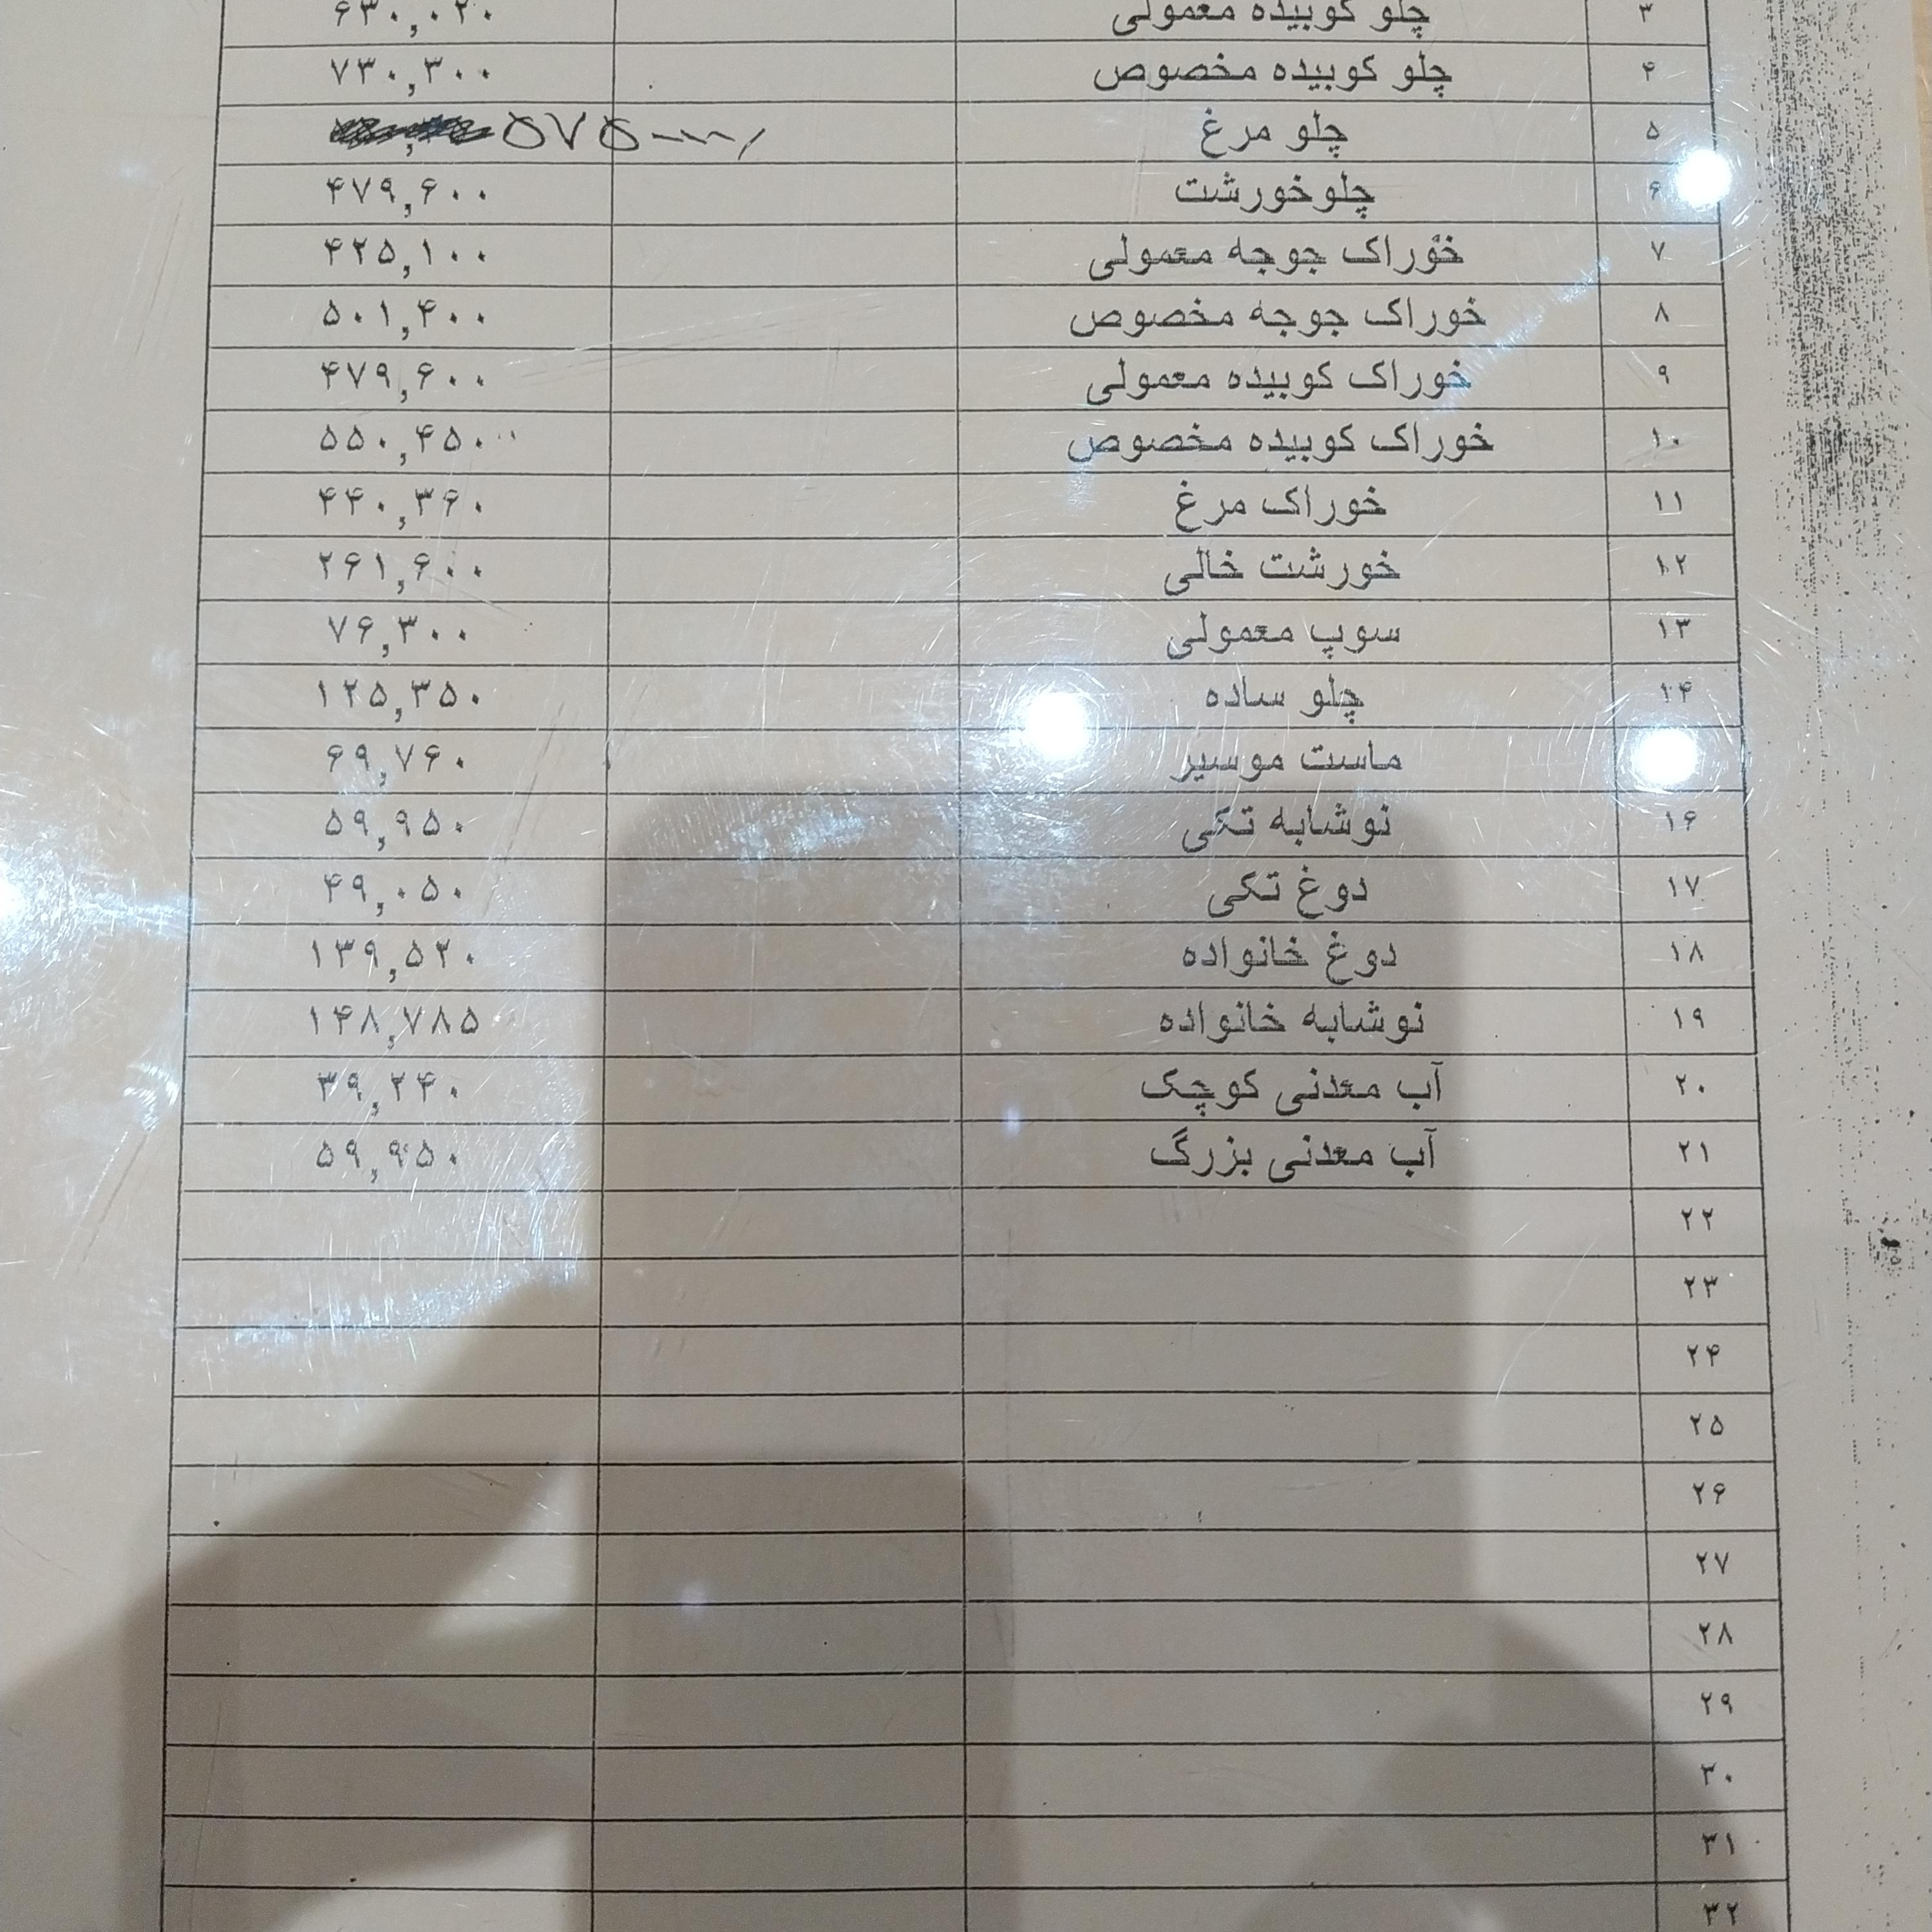 ۳ چلو کوبیده معمولی ۶۳۰,۰۲۰
۴ چلو کوبیده مخصوص ۷۳۰,۳۰۰
۵ چلو مرغ ۵۷۵
۶ چلوخورشت ۴۷۹,۶۰۰
۷ خوراک جوجه معمولی ۴۲۵,۱۰۰
۸ خوراک جوجه مخصوص ۵۰۱,۴۰۰
۹ خوراک کوبیده معمولی ۴۷۹,۶۰۰
۱۰ خوراک کوبیده مخصوص ۵۵۰,۴۵۰
۱۱ خوراک مرغ ۴۴۰,۳۶۰
۱۲ خورشت خالی ۲۶۱,۶۰۰
۱۳ سوپ معمولی ۷۶,۳۰۰
۱۴ چلو ساده ۱۲۵,۳۵۰
ماست موسیر ۶۹,۷۶۰
۱۶ نوشابه تکی ۵۹,۹۵۰
۱۷ دوغ تکی ۴۹,۰۵۰
۱۸ دوغ خانواده ۱۳۹,۵۲۰
۱۹ نوشابه خانواده ۱۴۸,۷۸۵
۲۰ آب معدنی کوچک ۳۹,۲۴۰
۲۱ آب معدنی بزرگ ۵۹,۹۵۰
۲۲
۲۳
۲۴
۲۵
۲۶
۲۷
۲۸
۲۹
۳۰
۳۱
۳۲